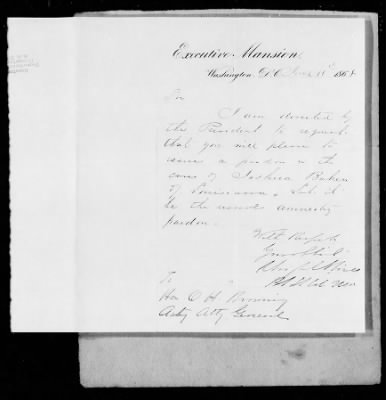 Executive Mansion,
Washington, D.C. June 18 1868
Sir
I am directed by
the President to request
that you will please to
issue a pardon in the
case of Joshua Baker
of Louisiana. Let it
be the usual amnesty
pardon.
With Respect
Your Obt
To
Hon O. H. Browning
Actg Atty General